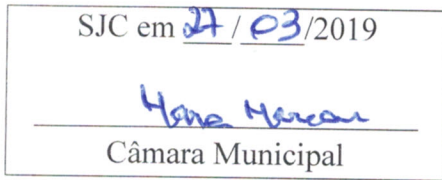 SJC em 27/03/2019
Câmara Municipal